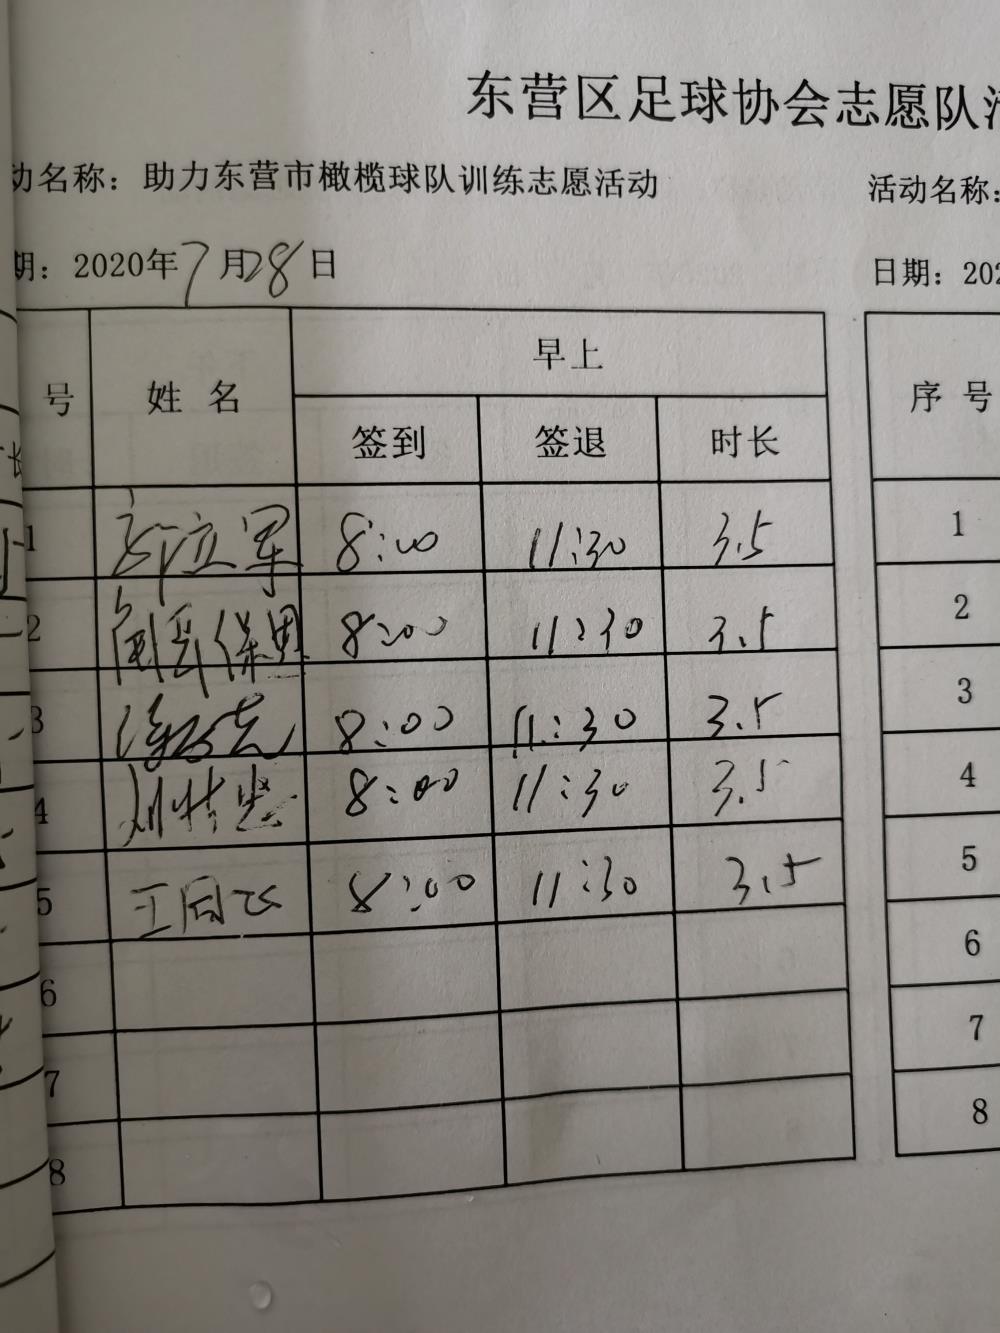 东营区足球协会志愿队
动名称：助力东营市橄榄球队训练志愿活动
活动名称：
期：2020年7月28日
日期：202
号 姓名 早上
签到 签退 时长
序号
1 8:00 11:30 3.5
2 8:00 11:30 3.5
3 8:00 11:30 3.5
4 8:00 11:30 3.5
5 8:00 11:30 3.5
6
7
8
1
2
3
4
5
6
7
8